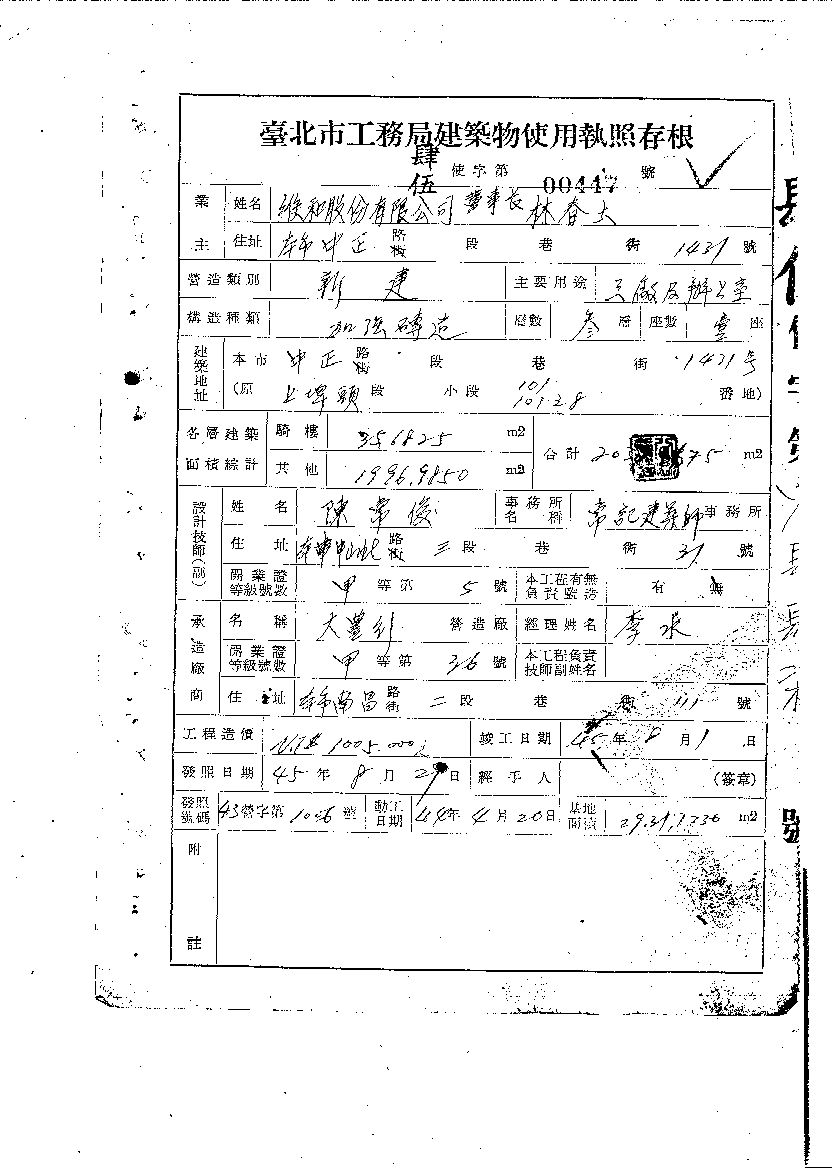 臺北市工務局建築物使用執照存根
肆伍 使字第 00447 號
業主 姓名 維和股份有限公司 董事長 林春土
住址 本市中正 路街 段 巷 街 1431 號
營造類別 新建 主要用途 工廠及辦公室
構造種類 加強磚造 層數 叁 層 座數 壹 座
建築地址 本市 中正 路街 段 巷 街 1421号
(原 上埤頭 段 小段 101 101-28 番地)
各層建築面積綜計 騎樓 356825 m2 合計 m2
其他 1996.9850 m2
設計技師(副) 姓名 陳常俊 事務所名稱 常記建築師 事務所
住址 路街 三 段 巷 街 31 號
開業證等級號數 甲 等第 5 號 本工程有無負責監造 有 無
承造廠商 名稱 大豐行 營造廠 經理姓名 李承
開業證等級號數 甲 等第 36 號 本工程負責技師副姓名
住址 本市南昌 路街 二 段 巷 111 號
工程造價 NT$ 1005.000元 竣工日期 45 年 8 月 1 日
發照日期 45 年 8 月 29 日 經手人 (簽章)
發照號碼 43 營字第 1056 號 動工日期 44 年 4 月 20 日 基地面積 m2
附註